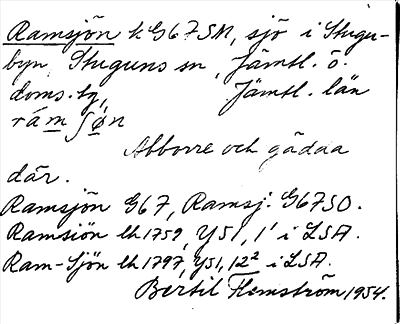 Ramsjön k G67SN, sjö i Stugu-
byn, Stuguns sn, Jämtl. ö.
doms. tg, Jämtl. län
ràm ʃøn
Abborre och gädda
där.
Ramsjön G67, Ramsj. G67SO.
Ramsiön lh 1759, Y51, 1' i LSA.
Ram-Sjön lh 1797, Y51, 12² i LSA.
Bertil Flemström 1954.